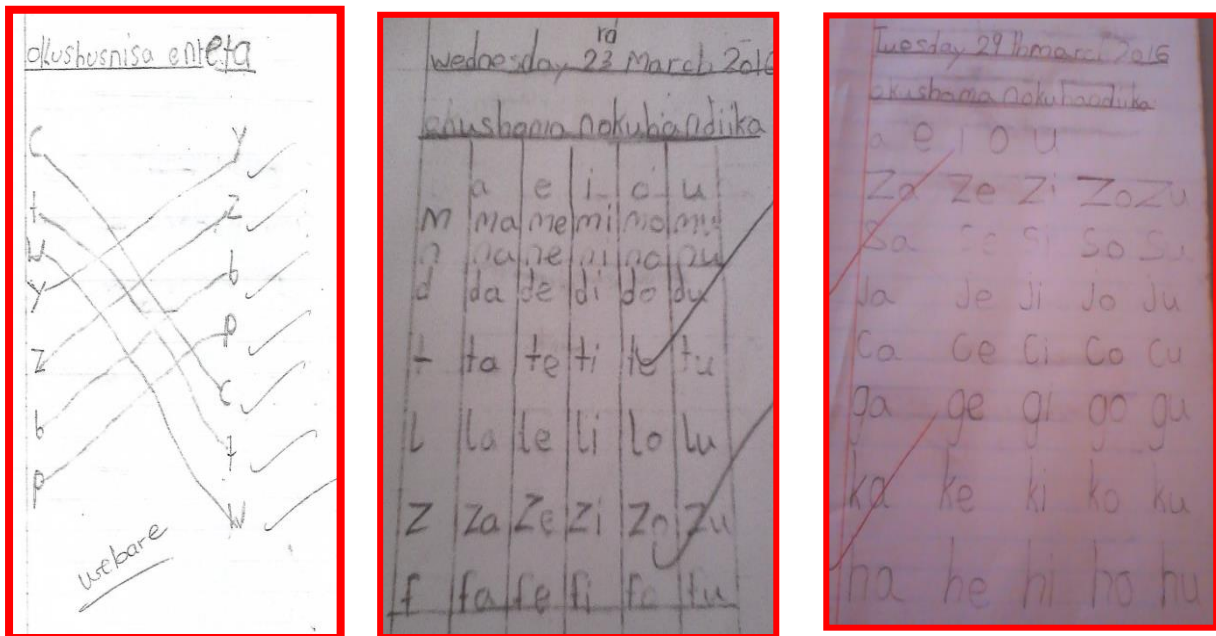 okushusnisa enteta
C Y
t Z
W b
Y p
Z c
b t
p W
webare
wednesday 23rd March 2016
okushoma nokuhandiika
a e i o u
m ma me mi mo mu
n na ne ni no nu
d da de di do du
t ta te ti to tu
l la le li lo lu
Z Za Ze Zi Zo Zu
f fa fe fi fo fu
Tuesday 29th march 2016
okushoma nokuhandiika
a e i o u
Za Ze Zi Zo Zu
Sa Se Si So Su
Ja Je Ji Jo Ju
Ca Ce Ci Co Cu
ga ge gi go gu
ka ke ki ko ku
ha he hi ho hu